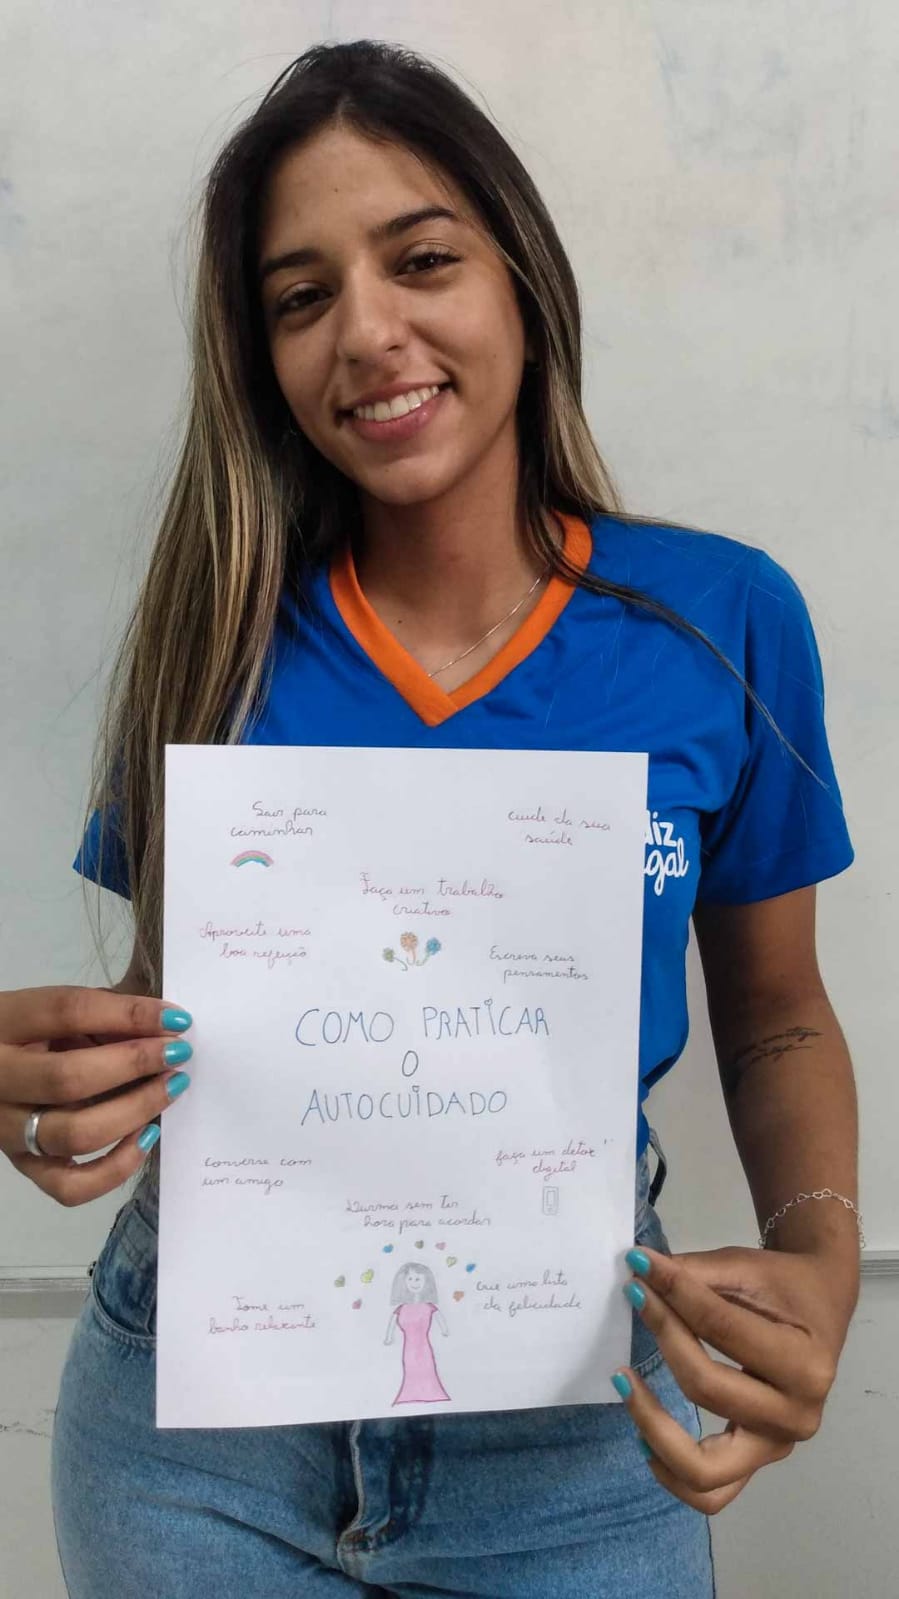 Sair para
caminhar
cuide da sua
saúde
Faça um trabalho
criativo
Aproveite uma
boa refeição
Escreva seus
pensamentos
COMO PRATICAR
O
AUTOCUIDADO
Converse com
um amigo
faça um detox
digital
Durma sem ter
hora para acordar
Tome um
banho relaxante
Crie uma lista
da felicidade
iz
gal